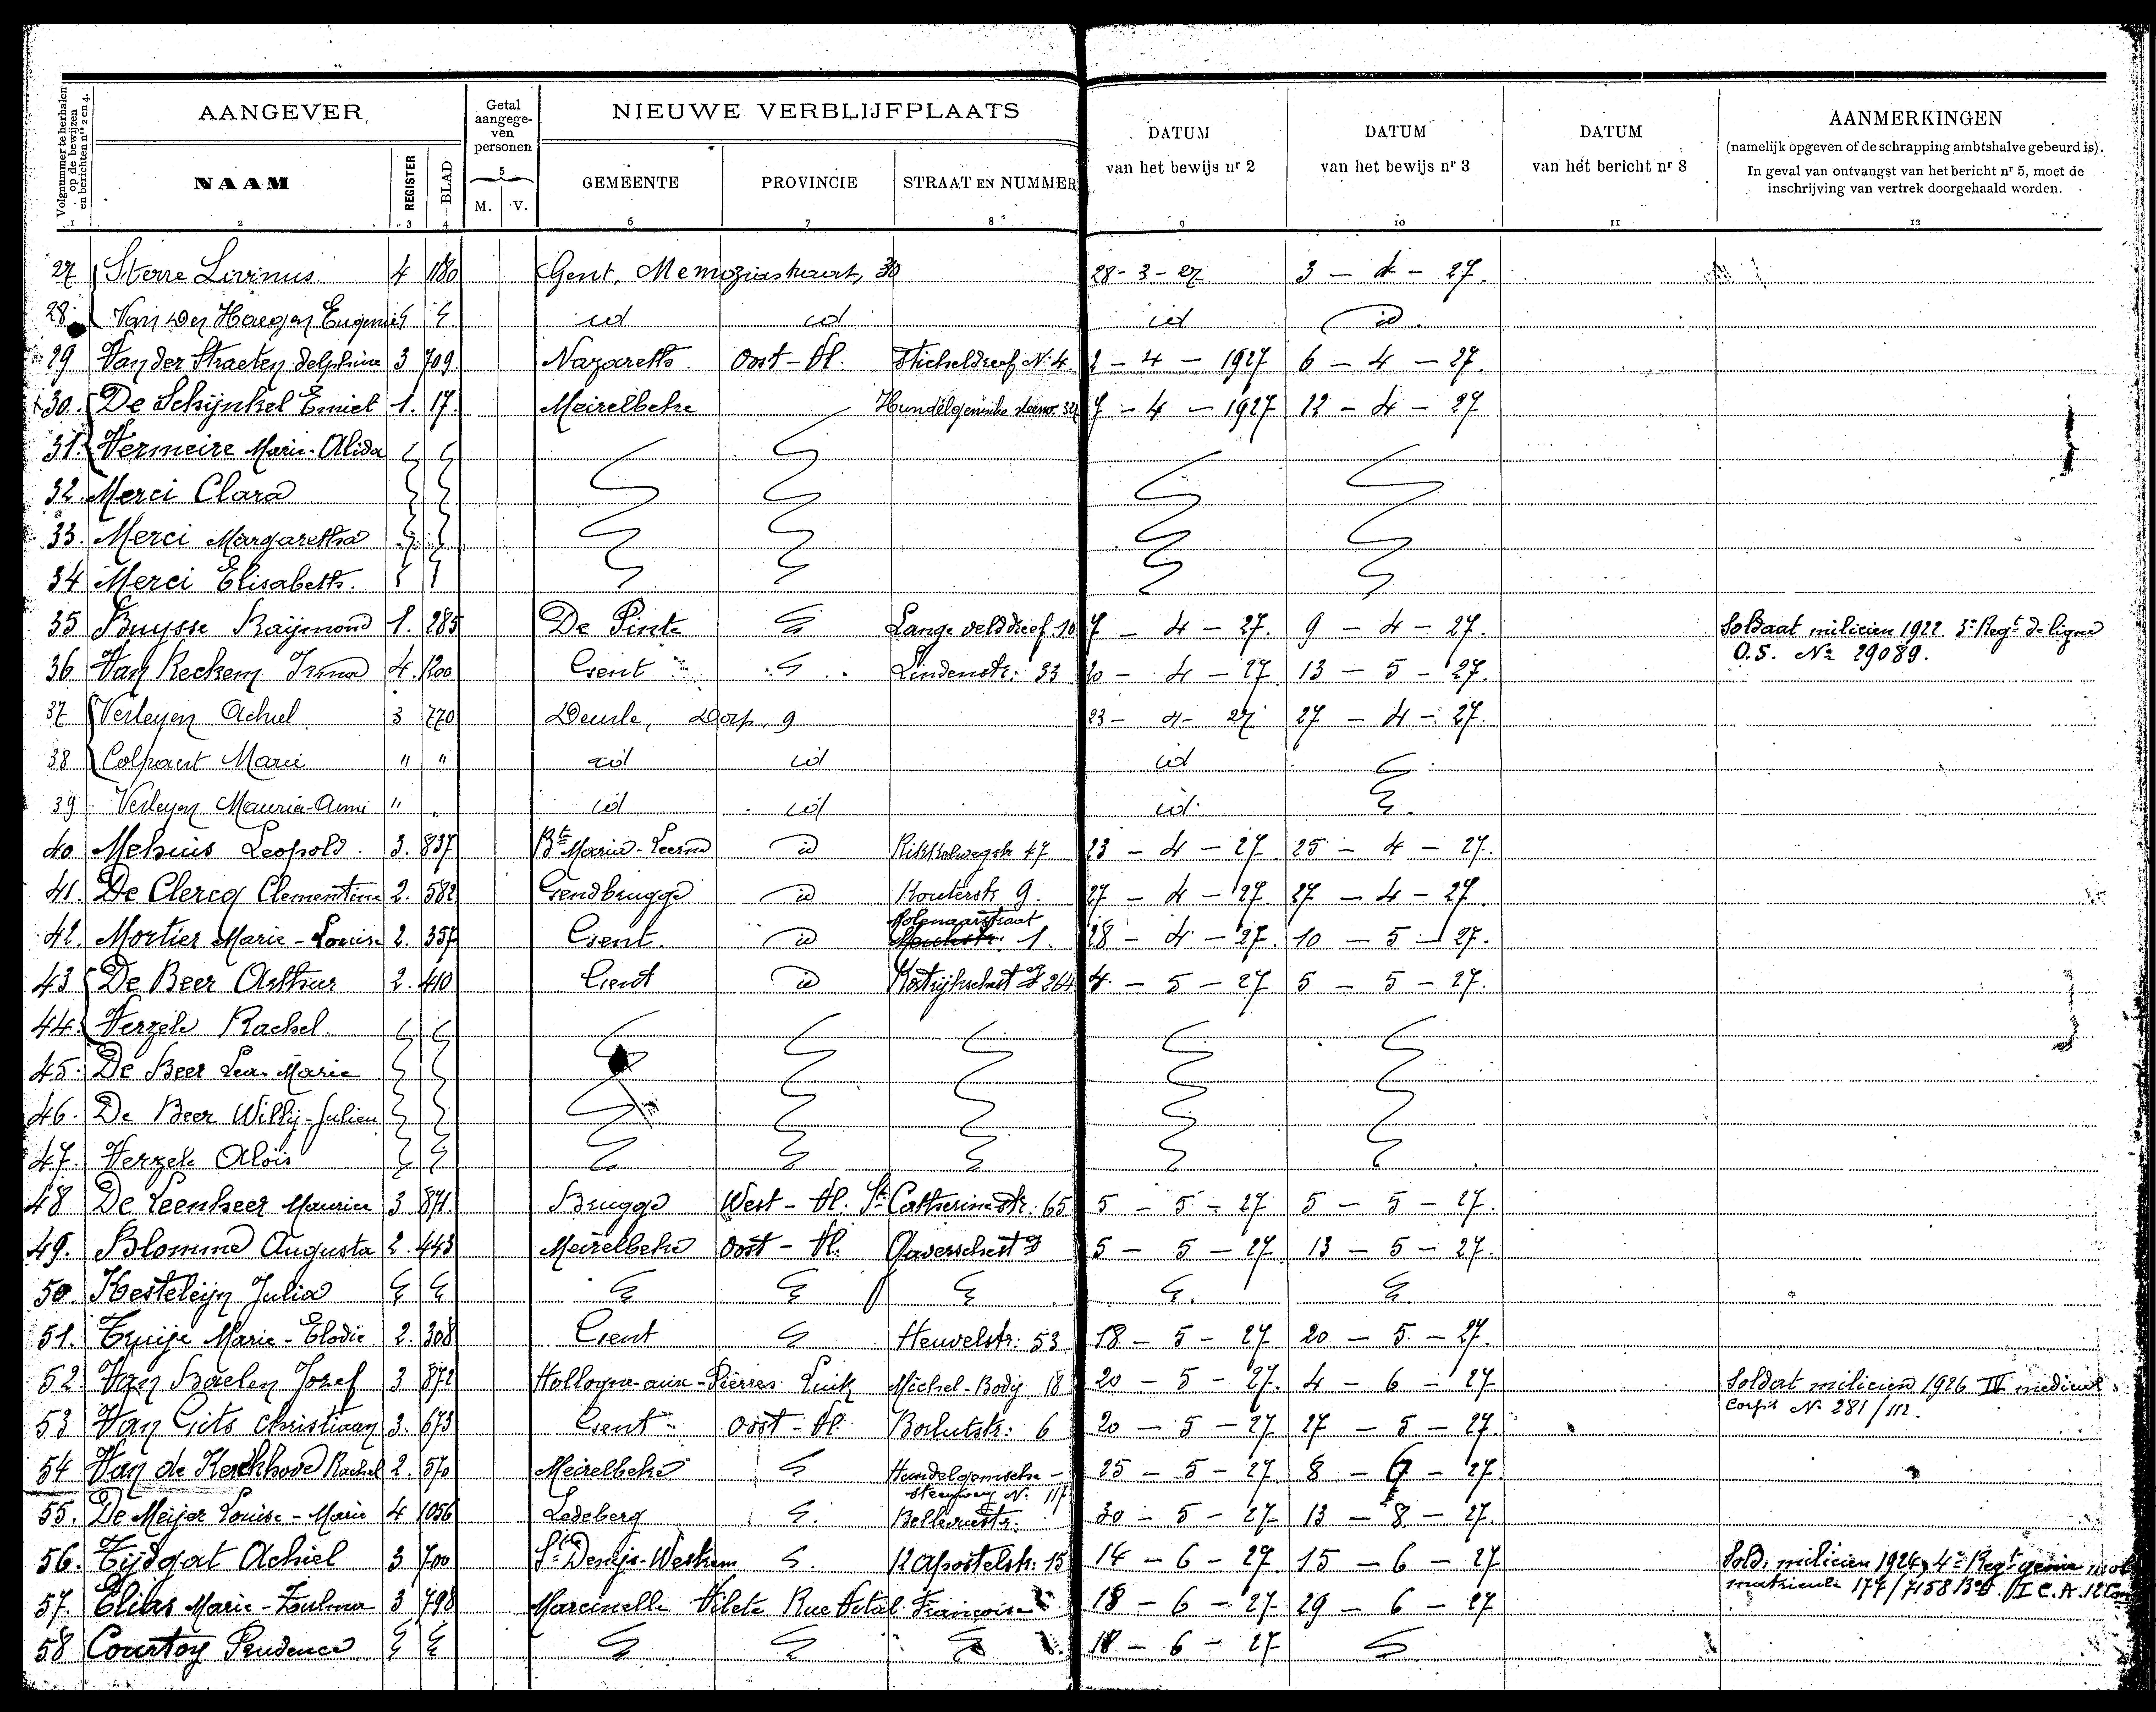 Volgnummer te herhalen op de bewijzen en berichten nrs 2 en 4.
AANGEVER
Getal aangegeven personen
NIEUWE VERBLIJFPLAATS
DATUM van het bewijs nr 2
DATUM van het bewijs nr 3
DATUM van het bericht nr 8
AANMERKINGEN
(namelijk opgeven of de schrapping ambtshalve gebeurd is).
In geval van ontvangst van het bericht nr 5, moet de inschrijving van vertrek doorgehaald worden.
NAAM REGISTER BLAD 5 M. V. GEMEENTE PROVINCIE STRAAT EN NUMMER
1 2 3 4 6 7 8 9 10 11 12
27 Sterre Livinus. 4 180 Gent, 30 28-3-27 3 - 4 - 27.
28. Van Der Haegen Eugenie id id id id.
29 Van der Straeten Delphine 3 709. Nazareth. Oost-Vl. Sticheldreef No 4. 2 - 4 - 1927 6 - 4 - 27.
30. De Schijnkel Emiel 1. 17. Meirelbeke 7 - 4 - 1927 12 - 4 - 27
31. Vermeire Marie-Alida
32. Merci Clara
33. Merci Margaretha
34 Merci Elisabeth.
35 Buysse Raijmond 1. 285 De Pinte Lange velddreef 10 7 - 4 - 27. 9 - 4 - 27. Soldaat milicien 1922 3e Regt de ligne
O.S. No 29089.
36 Van Reckem Irma 4. 1200 Gent Lindenstr: 33 20 - 4 - 27. 13 - 5 - 27.
37 Verleyen Achiel 3 770 Deurle, Dorp, 9 23 - 4 - 27 27 - 4 - 27.
38 Colpaert Marie " " id id id
39 Verleyen Maurice " " id id id
40 Mehuis Leopold. 3. 837 id 47 23 - 4 - 27. 25 - 4 - 27.
41. De Clercq Clementine 2. 582 Gendbrugge id Kouterstr 9. 27 - 4 - 27. 27 - 4 - 27.
Molenaarstraat
42. Mortier Marie-Louise 2. 357 Gent. id 1. 28 - 4 - 27. 10 - 5 - 27.
43 De Beer Arthur 2. 410 Gent id 264 4. - 5 - 27 5 - 5 - 27.
44. Verzele Rachel.
45. De Beer Lea-Marie
46. De Beer Willy-Julien
47. Verzele Aloïs
48 De Leenheer Maurice 3. 871. Brugge West-Vl. St Catherinestr: 65 5 - 5 - 27 5 - 5 - 27.
49. Blomme Augusta 2. 443 Meirelbeke Oost-Vl. 5 - 5 - 27. 13 - 5 - 27.
50. Kesteleijn Julia
51. Marie-Elodie 2. 308 Gent Heuvelstr: 53 18 - 5 - 27 20 - 5 - 27.
52. Van Baelen Jozef 3 872 Hollogne-aux-Pierres Luik Michel-Body 18 20 - 5 - 27. 4 - 6 - 27 Soldat milicien 1926 medical
corps No 281/112.
53 Van Gits Christiaan 3. 673 Gent Oost-Vl. Borlutstr: 6 20 - 5 - 27 27 - 5 - 27.
54 Van de Kerckhove Rachel 2. 570 Meirelbeke Hundelgemsche- 25 - 5 - 27. 8 - 6 - 27.
steenweg No 117
55. De Meijer Louise-Marie 4 1056 Ledeberg Bellevuestr: 30 - 5 - 27 13 - 8 - 27.
56. Tijdgat Achiel 3 700 St Denijs-Westrem 12 Apostelstr: 15 14 - 6 - 27. 15 - 6 - 27 Sold. milicien 1924, 4e Regt genie
matricule 177/7158
57. Elias Marie-Zulma 3 798 Marcinelle Rue Vital Francoise 18 - 6 - 27 29 - 6 - 27
58 Courtoy Prudence 18 - 6 - 27